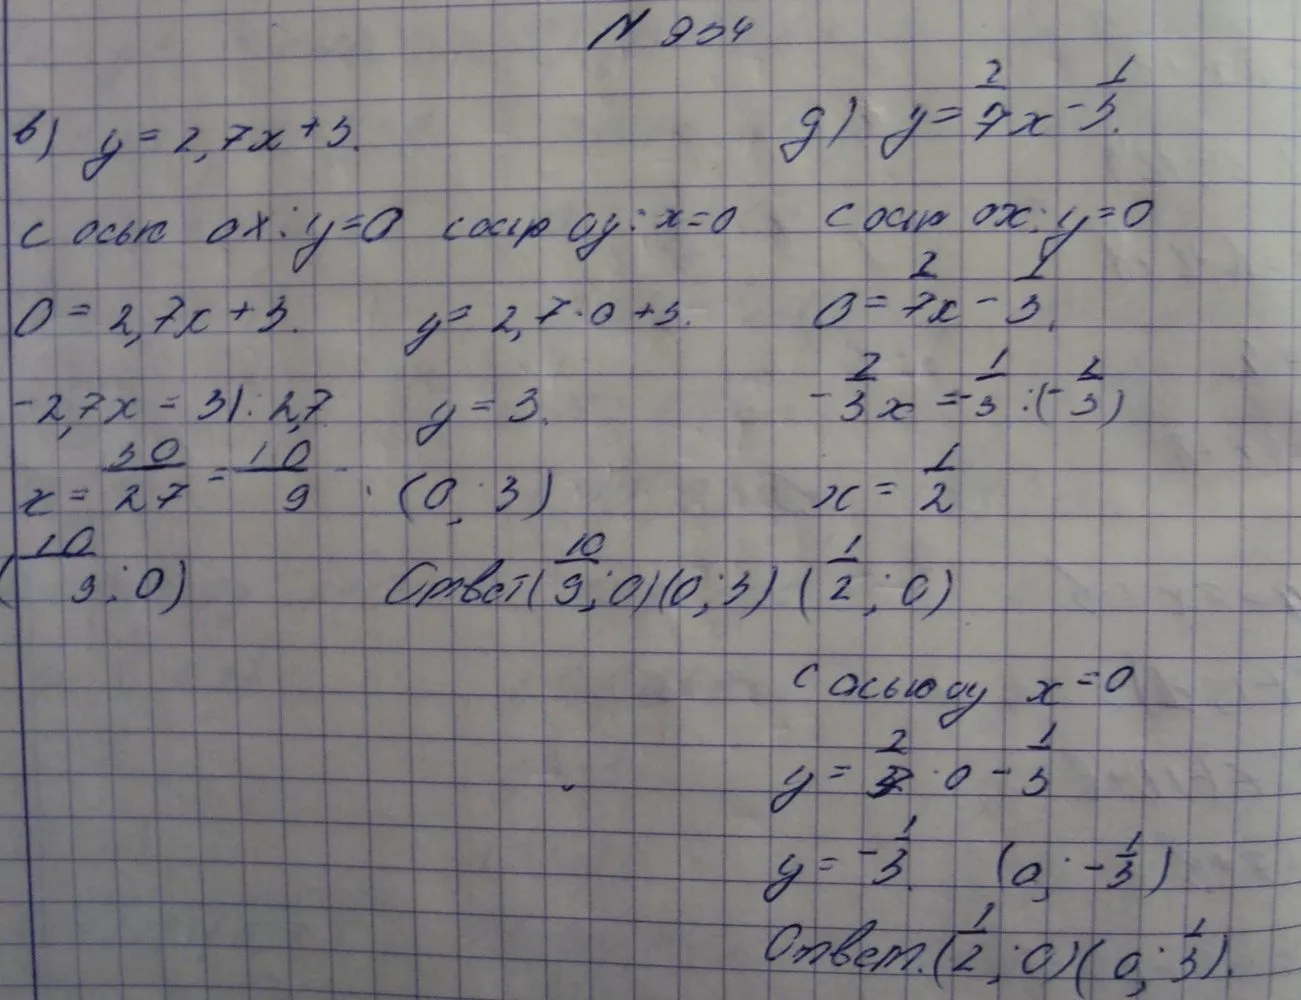 N 954
в) y = 2,7x + 3.
с осью ox: y=0 с осью oy: x=0
0 = 2,7x + 3. y = 2,7 · 0 + 3.
-2,7x = 3 |: 2,7 y = 3.
x = 30/27 = 10/9 (0; 3)
(10/9; 0) Ответ (10/9; 0) (0; 3)
д) y = 2/7x - 1/3.
с осью ox: y=0
0 = 2/7x - 1/3.
-2/3x = -1/3 : (-2/3)
x = 1/2
(1/2; 0)
с осью oy x=0
y = 2/7 · 0 - 1/3
y = -1/3. (0; -1/3)
Ответ. (1/2; 0) (0; 1/3).